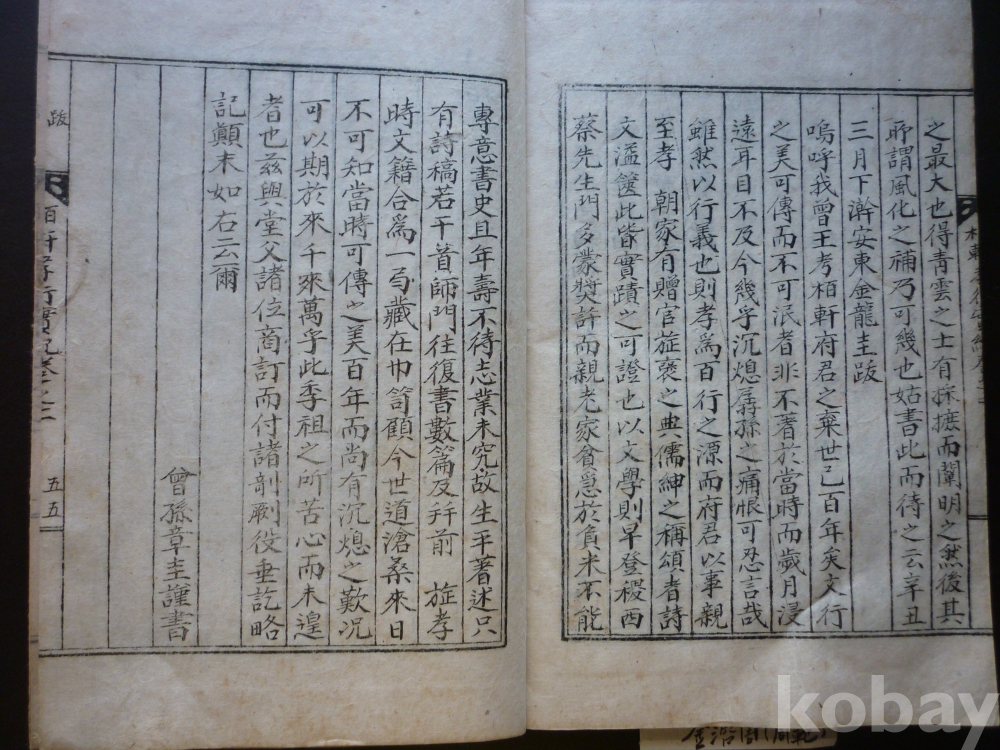 之最大也得青雲之士有採摭而闡明之然後其
所謂風化之補乃可幾也姑書此而待之云辛丑
三月下澣安東金龍圭跋
嗚呼我曾王考栢軒府君之棄世已百年矣文行
之美可傳而不可泯者非不著於當時而歲月浸
遠耳目不及今幾乎沉熄孱孫之痛恨可忍言哉
雖然以行義也則孝爲百行之源而府君以事親
至孝 朝家有贈官旋褒之典儒紳之稱頌者詩
文溢篋此皆實蹟之可證也以文學則早登稷西
蔡先生門多蒙奬許而親老家貧急於負米不能
專意書史且年壽不待志業未究故生平著述只
有詩稿若干首師門往復書數篇及幷前 旌孝
時文籍合爲一局藏在巾笥顧今世道滄桑來日
不可知當時可傳之美百年而尚有沉熄之歎况
可以期於來千來萬乎此季祖之所苦心而未遑
者也茲與堂父諸位商訂而付諸剞劂役垂訖略
記顚末如右云爾
曾孫章圭謹書
跋
栢軒孝行實記卷之二
五五
kobay